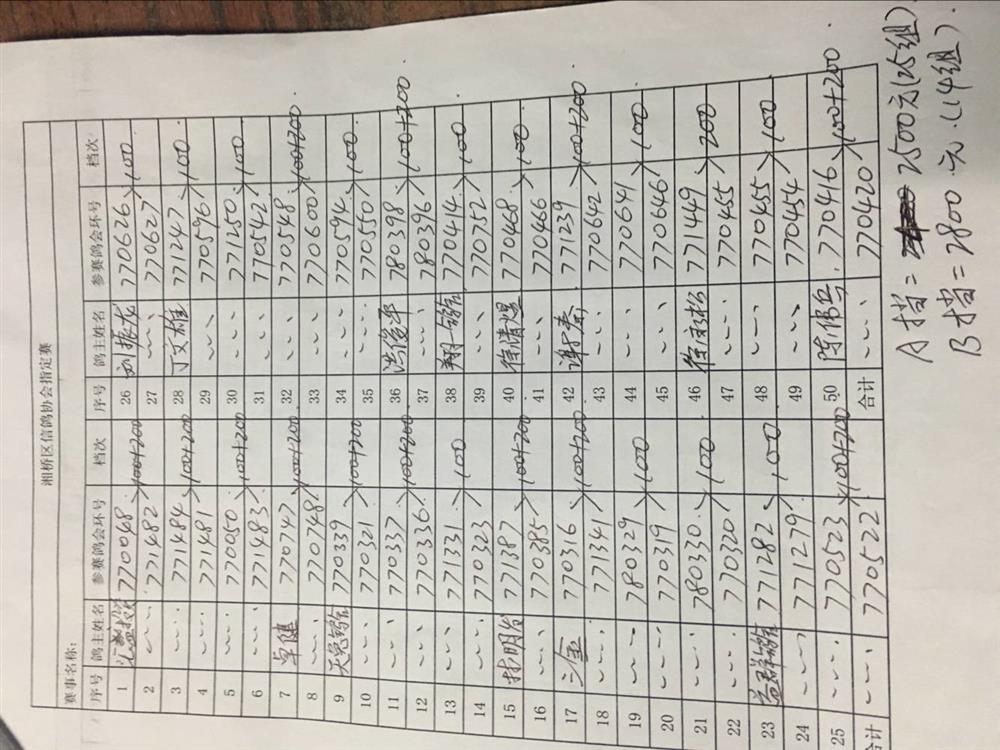 湘桥区信鸽协会指定赛
赛事名称:
序号 鸽主姓名 参赛鸽会环号 档次 序号 鸽主姓名 参赛鸽会环号 档次
1 770048 100+200 26 刘振龙 770626 100
2 771482 27 770627
3 771484 100+200 28 丁文雄 771247 100
4 771481 29 770596
5 770050 100+200 30 771250 100
6 771483 31 770542
7 卓健 770747 100+200 32 770548 100+200
8 770748 33 770600
9 770339 100+200 34 770594 100
10 770321 35 770550
11 770337 100+200 36 洪俊华 780398 100+200
12 770336 37 780396
13 771331 100 38 770414 100
14 770323 39 770752
15 771387 100+200 40 770468 100
16 770385 41 770466
17 770316 100+200 42 771239 100+200
18 771341 43 770642
19 780329 100 44 770641 100
20 770319 45 770646
21 780330 100 46 771449 200
22 770320 47 770455
23 771282 100 48 770455 100
24 771279 49 770454
25 770523 100+200 50 770416 100+200
合计 770522 合计 770420
A档=2500元(25组)
B档=2800元(14组)